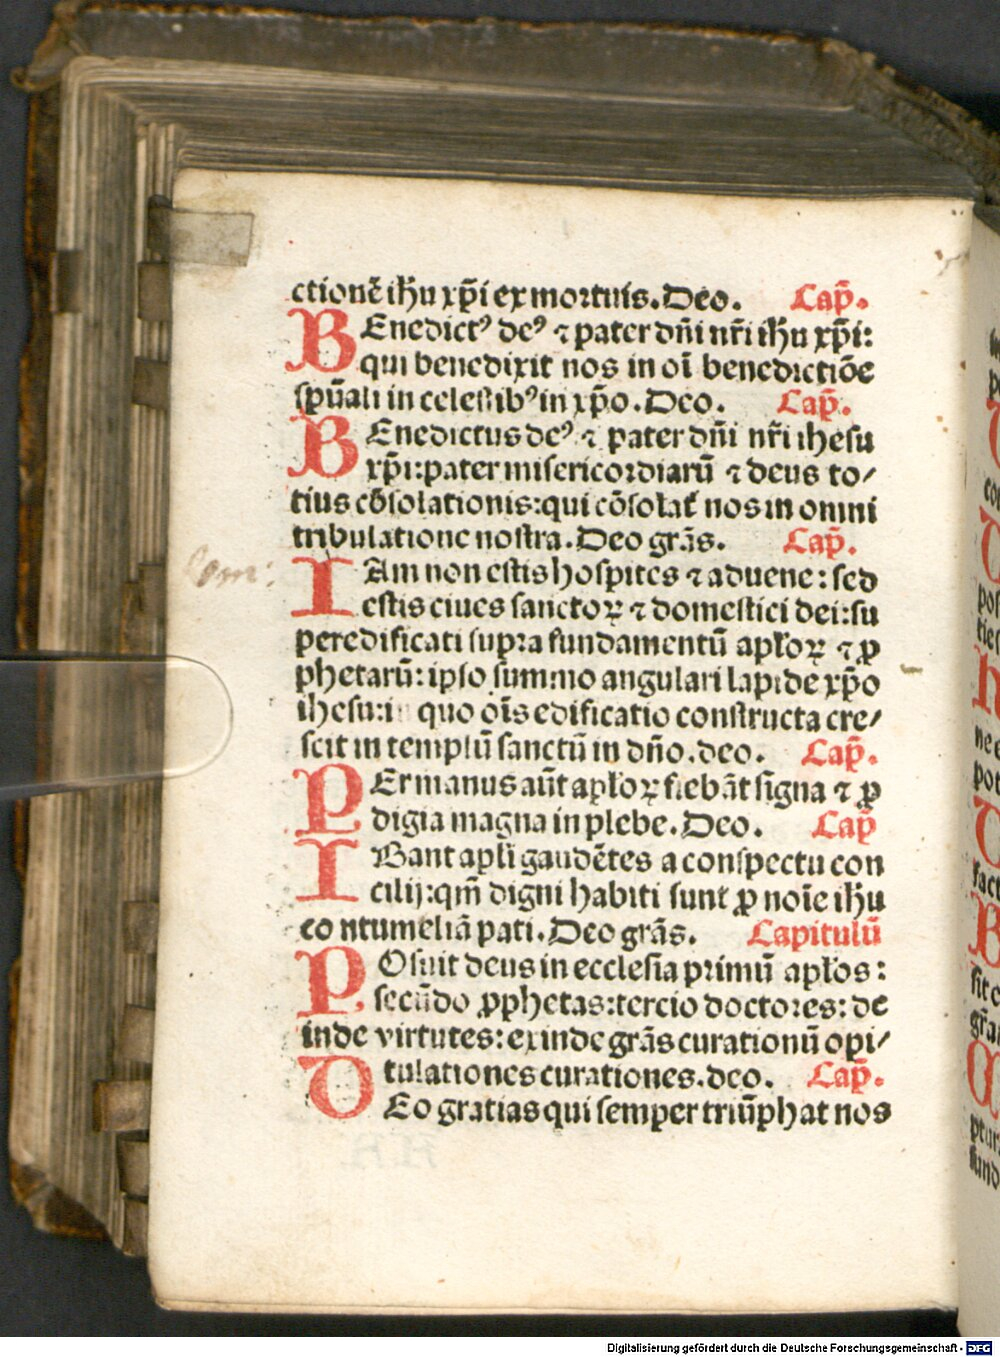 ctionē ih̄u xp̄i ex mortuis. Deo. Cap̄.
BEnedictꝰ deꝰ ⁊ pater dn̄i nr̄i ih̄u xp̄i:
qui benedixit nos in oī benedictiōe
sp̄uali in celestibꝰ in xp̄o. Deo. Cap̄.
BEnedictus deꝰ ⁊ pater dn̄i nr̄i ihesu
xp̄i: pater misericordiarū ⁊ deus to/
tius cōsolationis: qui cōsolat̄ nos in omni
tribulatione nostra. Deo grās. Cap̄.
IAm non estis hospites ⁊ aduene: sed
estis ciues sanctoꝝ ⁊ domestici dei: su
peredificati supra fundamentū apl̄oꝝ ⁊ ꝓ
phetarū: ipso summo angulari lapide xp̄o
ihesu: i quo oīs edificatio constructa cre/
scit in templū sanctū in dn̄o. deo. Cap̄.
PEr manus aūt apl̄oꝝ fiebāt signa ⁊ ꝓ
digia magna in plebe. Deo. Cap̄
IBant apl̄i gaudētes a conspectu con
cilij: qm̄ digni habiti sunt ꝓ noīe ih̄u
contumeliā pati. Deo grās. Capitulū
POsuit deus in ecclesia primū apl̄os:
secūdo ꝓphetas: tercio doctores: de
inde virtutes: exinde grās curationū opi/
tulationes curationes. deo. Cap̄.
DEo gratias qui semper triūphat nos
Digitalisierung gefördert durch die Deutsche Forschungsgemeinschaft - DFG